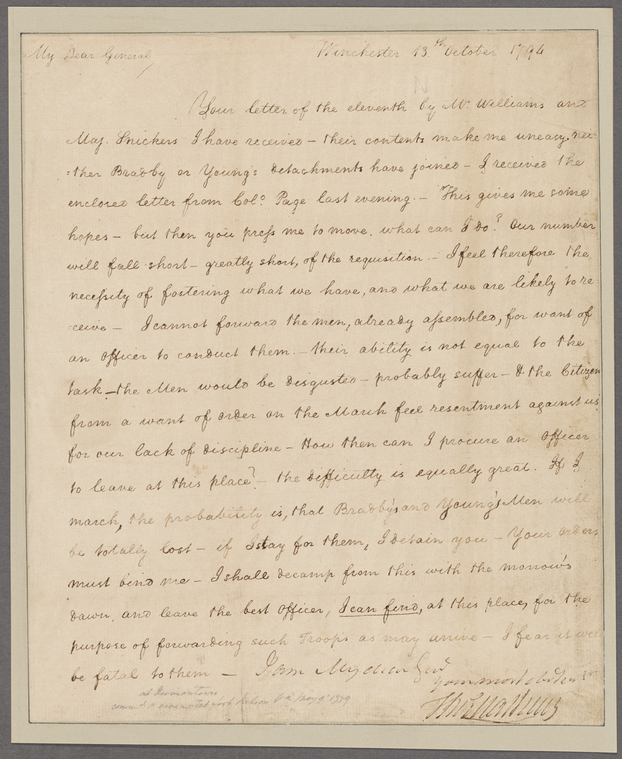 My Dear General, Winchester 13th October 1794
Your letter of the eleventh by Mr. Williams and
Maj. Snickers I have received – their contents make me uneasy, nei
=ther Bradby or Young's Detachments have joined – I received the
enclosed letter from Colo. Page last evening. – This gives me some
hopes – but then you press me to move. what can I do? Our number
will fall short – greatly short, of the requisition – I feel therefore the
necessity of fostering what we have, and what we are likely to re
ceive – I cannot forward the men, already assembled, for want of
an Officer to conduct them. – their ability is not equal to the
task – the Men would be disgusted – probably suffer – & the Citizen
from a want of order on the March feel resentment against us
for our lack of discipline – How then can I procure an Officer
to leave at this place? – the difficulty is equally great. If I
march, the probability is, that Bradby's and Young's Men will
be totally lost – if I stay for them, I detain you – Your orders
must bind me – I shall decamp from this with the morrow's
dawn, and leave the best Officer, I can find, at this place, for the
purpose of forwarding such Troops as may arrive – I fear it will
be fatal to them – I am My dear Genl
Your most obedien Sr
Ths Mathews
at